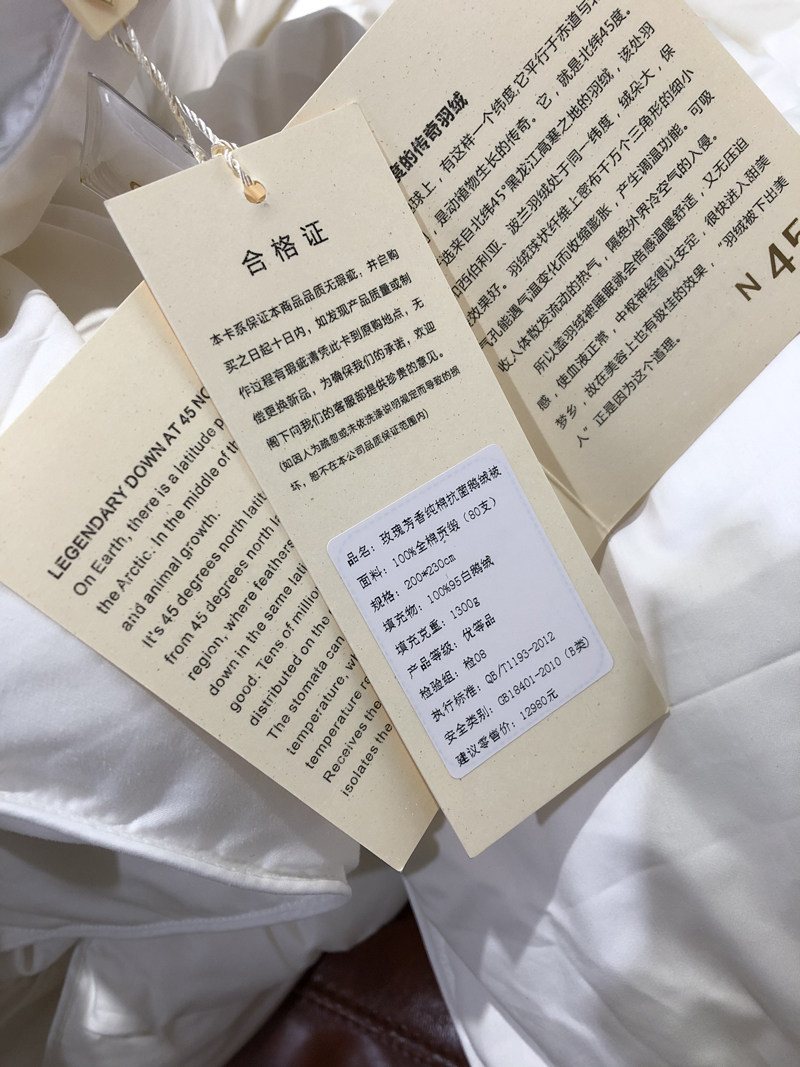 合格证
本卡系保证本商品品质无瑕疵，并自购
买之日起十日内，如发现产品质量或制
作过程有瑕疵请凭此卡到原购地点，无
偿更换新品，为确保我们的承诺，欢迎
阁下向我们的客服部提供珍贵的意见。
(如因人为疏忽或未依洗涤说明规定而导致的损
坏，恕不在本公司品质保证范围内)
品名：玫瑰芳香纯棉抗菌鹅绒被
面料：100%全棉贡缎（80支）
规格：200*230cm
填充物：100%95白鹅绒
填充克重：1300g
产品等级：优等品
检验组：检08
执行标准：QB/T1193-2012
安全类别：GB18401-2010（B类）
建议零售价：12980元
度的传奇羽绒
球上，有这样一个纬度,它平行于赤道与
，是动植物生长的传奇。它，就是北纬45度。
选来自北纬45°黑龙江高寒之地的羽绒，该处羽
西伯利亚、波兰羽绒处于同一纬度，绒朵大，保
效果好。羽绒球状纤维上密布千万个三角形的细小
气孔能遇气温变化而收缩膨胀，产生调温功能。可吸
收人体散发流动的热气，隔绝外界冷空气的入侵。
所以盖羽绒被睡眠就会倍感温暖舒适，又无压迫
感，使血液正常，中枢神经得以安定，很快进入甜美
梦乡，故在美容上也有极佳的效果，“羽绒被下出美
人”正是因为这个道理。
N 45
LEGENDARY DOWN AT 45 NO
On Earth, there is a latitude p
the Arctic. In the middle of th
and animal growth.
It's 45 degrees north latit
from 45 degrees north l
region, where feathers
down in the same lati
good. Tens of millio
distributed on the
The stomata can
temperature, w
temperature re
Receives the
isolates the